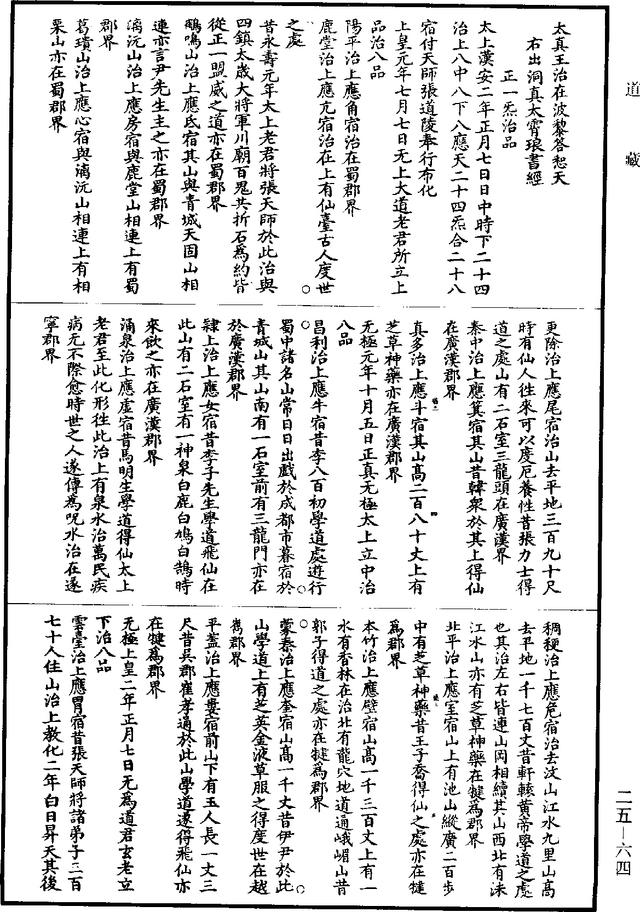 道藏
太真王治在波黎答恕天
右出洞真太霄琅書經
正一炁治品
太上漢安二年正月七日日中時下二十四
治上八中八下八應天二十四炁合二十八
宿付天師張道陵奉行布化
上皇元年七月七日无上大道老君所立上
品治八品
陽平治上應角宿治在蜀郡界
鹿堂治上應亢宿治在上有仙臺古人度世
之處
昔永壽元年太上老君將張天師於此治與
四鎮太歲大將軍川廟百鬼共折石爲約皆
從正一盟威之道亦在蜀郡界
鶴鳴山治上應氐宿其山與青城天国山相
連亦言尹先生主之亦在蜀郡界
漓沅山治上應房宿與鹿堂山相連上有蜀
郡界
葛璝山治上應心宿與漓沅山相連上有相
栗山亦在蜀郡界
更除治上應尾宿治山去平地三百九十尺
時有仙人徃來可以度厄養性昔張力士得
道之處山有二石室三龍頭在廣漢界
秦中治上應箕宿其山昔韓衆於其上得仙
在廣漢郡界
真多治上應斗宿其山高二百八十丈上有
芝草神藥亦在廣漢郡界
无極元年十月五日正真无極太上立中治
八品
昌利治上應牛宿昔李八百初學道處遊行
蜀中諸名山常日日出戲於成都市暮宿於
青城山其山南有一石室前有三龍門亦在
於廣漢郡界
隸上治上應女宿昔李子先生學道飛仙在
此山有二石室有一神泉白鹿白鳩白鵠時
來飲之亦在廣漢郡界
涌泉治上應虛宿昔馬明生學道得仙太上
老君至此化形徃此治上有泉水治萬民疾
病无不際愈時世之人遂傳爲呪水治在遂
寧郡界
稠稉治上應危宿治去汶山江水九里山高
去平地一千七百丈昔軒轅黃帝學道之處
也其治左右皆連山岡相續其山西北有沬
江水山亦有芝草神藥在犍爲郡界
北平治上應室宿山上有池山縱廣二百步
中有芝草神藥昔王子喬得仙之處亦在犍
爲郡界
本竹治上應壁宿山高一千三百丈上有一
水有香林在治北有龍穴地道通峨嵋山昔
郭子得道之處亦在犍爲郡界
蒙秦治上應奎宿山高一千丈昔伊尹於此
山學道上有芝英金液草服之得度世在越
嶲郡界
平蓋治上應婁宿前山下有玉人長一丈三
尺昔吳郡崔孝通於此山學道遂得飛仙亦
在犍爲郡界
无極上皇二年正月七日无爲道君玄老立
下治八品
雲臺治上應胃宿昔張天師將諸弟子三百
七十人住山治上教化二年白日昇天其後
二五—六四